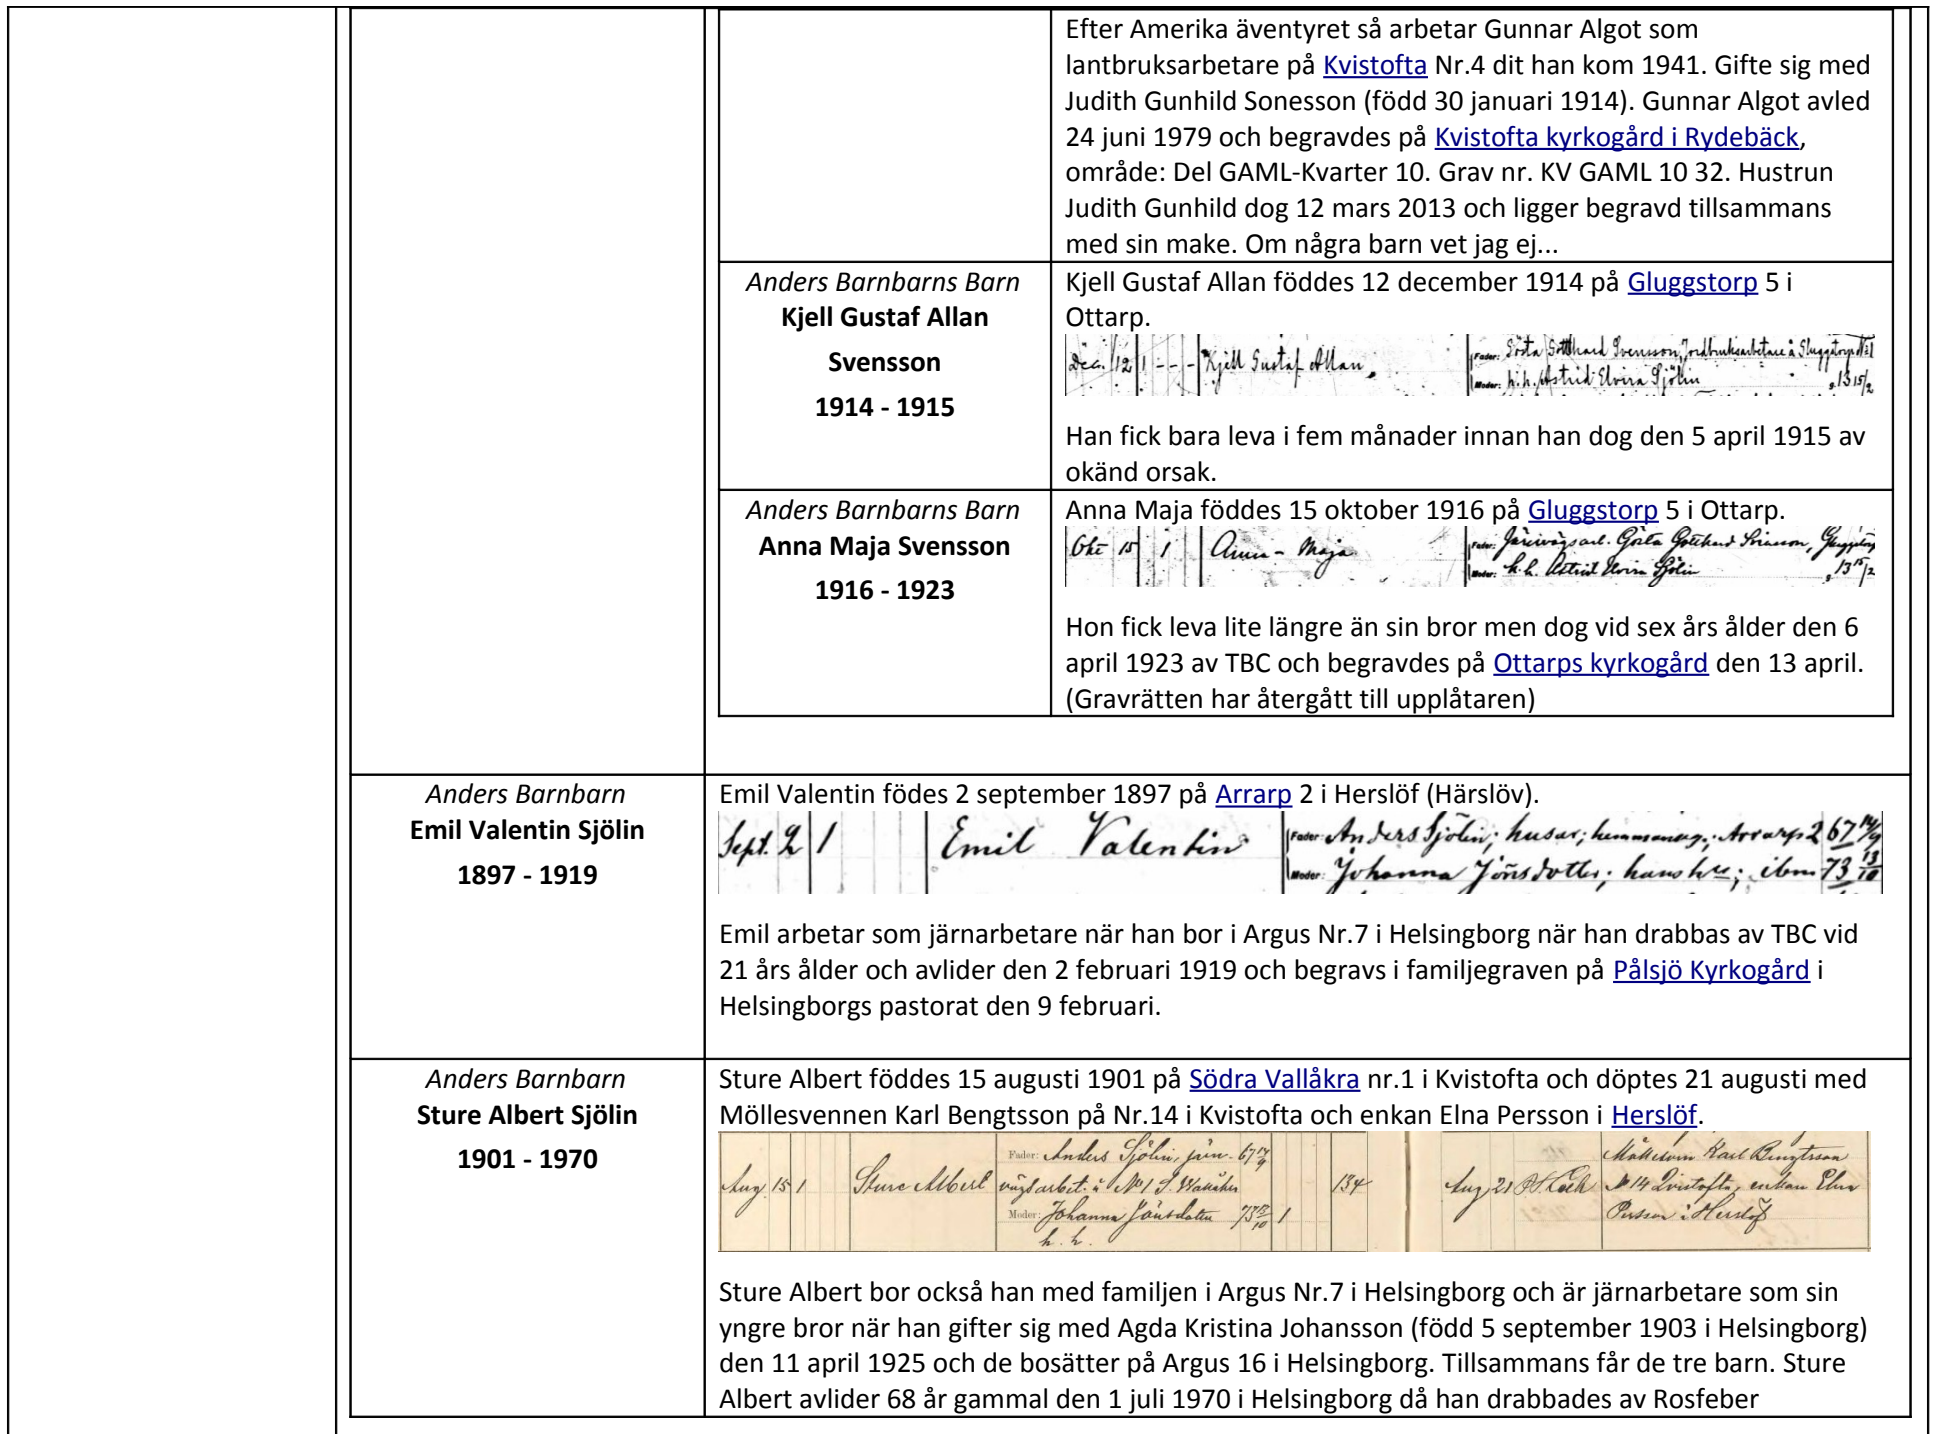 Efter Amerika äventyret så arbetar Gunnar Algot som
lantbruksarbetare på Kvistofta Nr.4 dit han kom 1941. Gifte sig med
Judith Gunhild Sonesson (född 30 januari 1914). Gunnar Algot avled
24 juni 1979 och begravdes på Kvistofta kyrkogård i Rydebäck,
område: Del GAML-Kvarter 10. Grav nr. KV GAML 10 32. Hustrun
Judith Gunhild dog 12 mars 2013 och ligger begravd tillsammans
med sin make. Om några barn vet jag ej...
Anders Barnbarns Barn
Kjell Gustaf Allan
Svensson
1914 - 1915
Kjell Gustaf Allan föddes 12 december 1914 på Gluggstorp 5 i
Ottarp.
Dec. 12 1 - - - Kjell Gustaf Allan, Fader: Gösta Gotthard Svensson, Jordbruksarbetare å Gluggstorp
Moder: h.h. Astrid Elvira Sjölin 13 15/2
Han fick bara leva i fem månader innan han dog den 5 april 1915 av
okänd orsak.
Anders Barnbarns Barn
Anna Maja Svensson
1916 - 1923
Anna Maja föddes 15 oktober 1916 på Gluggstorp 5 i Ottarp.
Okt 15 1 Anna-Maja Fader: Järnvägsarb. Gösta Gotthard Svensson,
Moder: h.h. Astrid Elvira Sjölin 13 15/2
Hon fick leva lite längre än sin bror men dog vid sex års ålder den 6
april 1923 av TBC och begravdes på Ottarps kyrkogård den 13 april.
(Gravrätten har återgått till upplåtaren)
Anders Barnbarn
Emil Valentin Sjölin
1897 - 1919
Emil Valentin födes 2 september 1897 på Arrarp 2 i Herslöf (Härslöv).
Sept. 2 1 Emil Valentin Fader: Anders Sjölin; husar; hemmansäg.; Arrarp 2 67 14/9
Moder: Johanna Jönsdotter; hans hru; ibm 73 13/10
Emil arbetar som järnarbetare när han bor i Argus Nr.7 i Helsingborg när han drabbas av TBC vid
21 års ålder och avlider den 2 februari 1919 och begravs i familjegraven på Pålsjö Kyrkogård i
Helsingborgs pastorat den 9 februari.
Anders Barnbarn
Sture Albert Sjölin
1901 - 1970
Sture Albert föddes 15 augusti 1901 på Södra Vallåkra nr.1 i Kvistofta och döptes 21 augusti med
Möllesvennen Karl Bengtsson på Nr.14 i Kvistofta och enkan Elna Persson i Herslöf.
Fader: Anders Sjölin, järn- 67 14/9 Möllesven Karl Bengtsson
Aug 15 1 Sture Albert vägsarbet. å No 1 S. Wallåkra 134 Aug 21 No 14 Qvistofta, enkan Elna
Moder: Johanna Jönsdotter 73 13/10 1 Persson i Herslöf
h. h.
Sture Albert bor också han med familjen i Argus Nr.7 i Helsingborg och är järnarbetare som sin
yngre bror när han gifter sig med Agda Kristina Johansson (född 5 september 1903 i Helsingborg)
den 11 april 1925 och de bosätter på Argus 16 i Helsingborg. Tillsammans får de tre barn. Sture
Albert avlider 68 år gammal den 1 juli 1970 i Helsingborg då han drabbades av Rosfeber